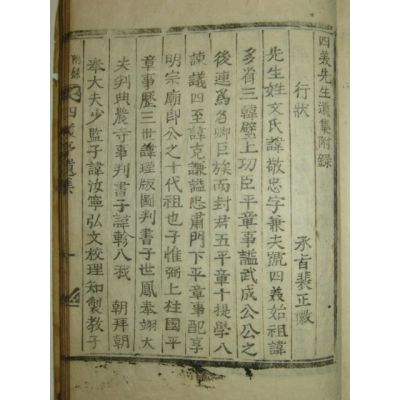 四義先生遺集附錄
行狀　承旨裴正徽
先生姓文氏諱敬忠字兼夫號四義始祖諱
多省三韓壁上功臣平章事謚武成公公之
後連爲名卿巨族而封君五平章十提學八
諫議四至諱克謙謚忠肅門下平章事配享
明宗廟卽公之十代祖也子惟弼上柱國平
章事歷三世諱版圖判書子世鳳奉翊大
夫判典農寺事判書子諱軫入我　朝拜朝
奉大夫少監子諱汝寧弘文校理知製敎子
附錄　四義遺集　一